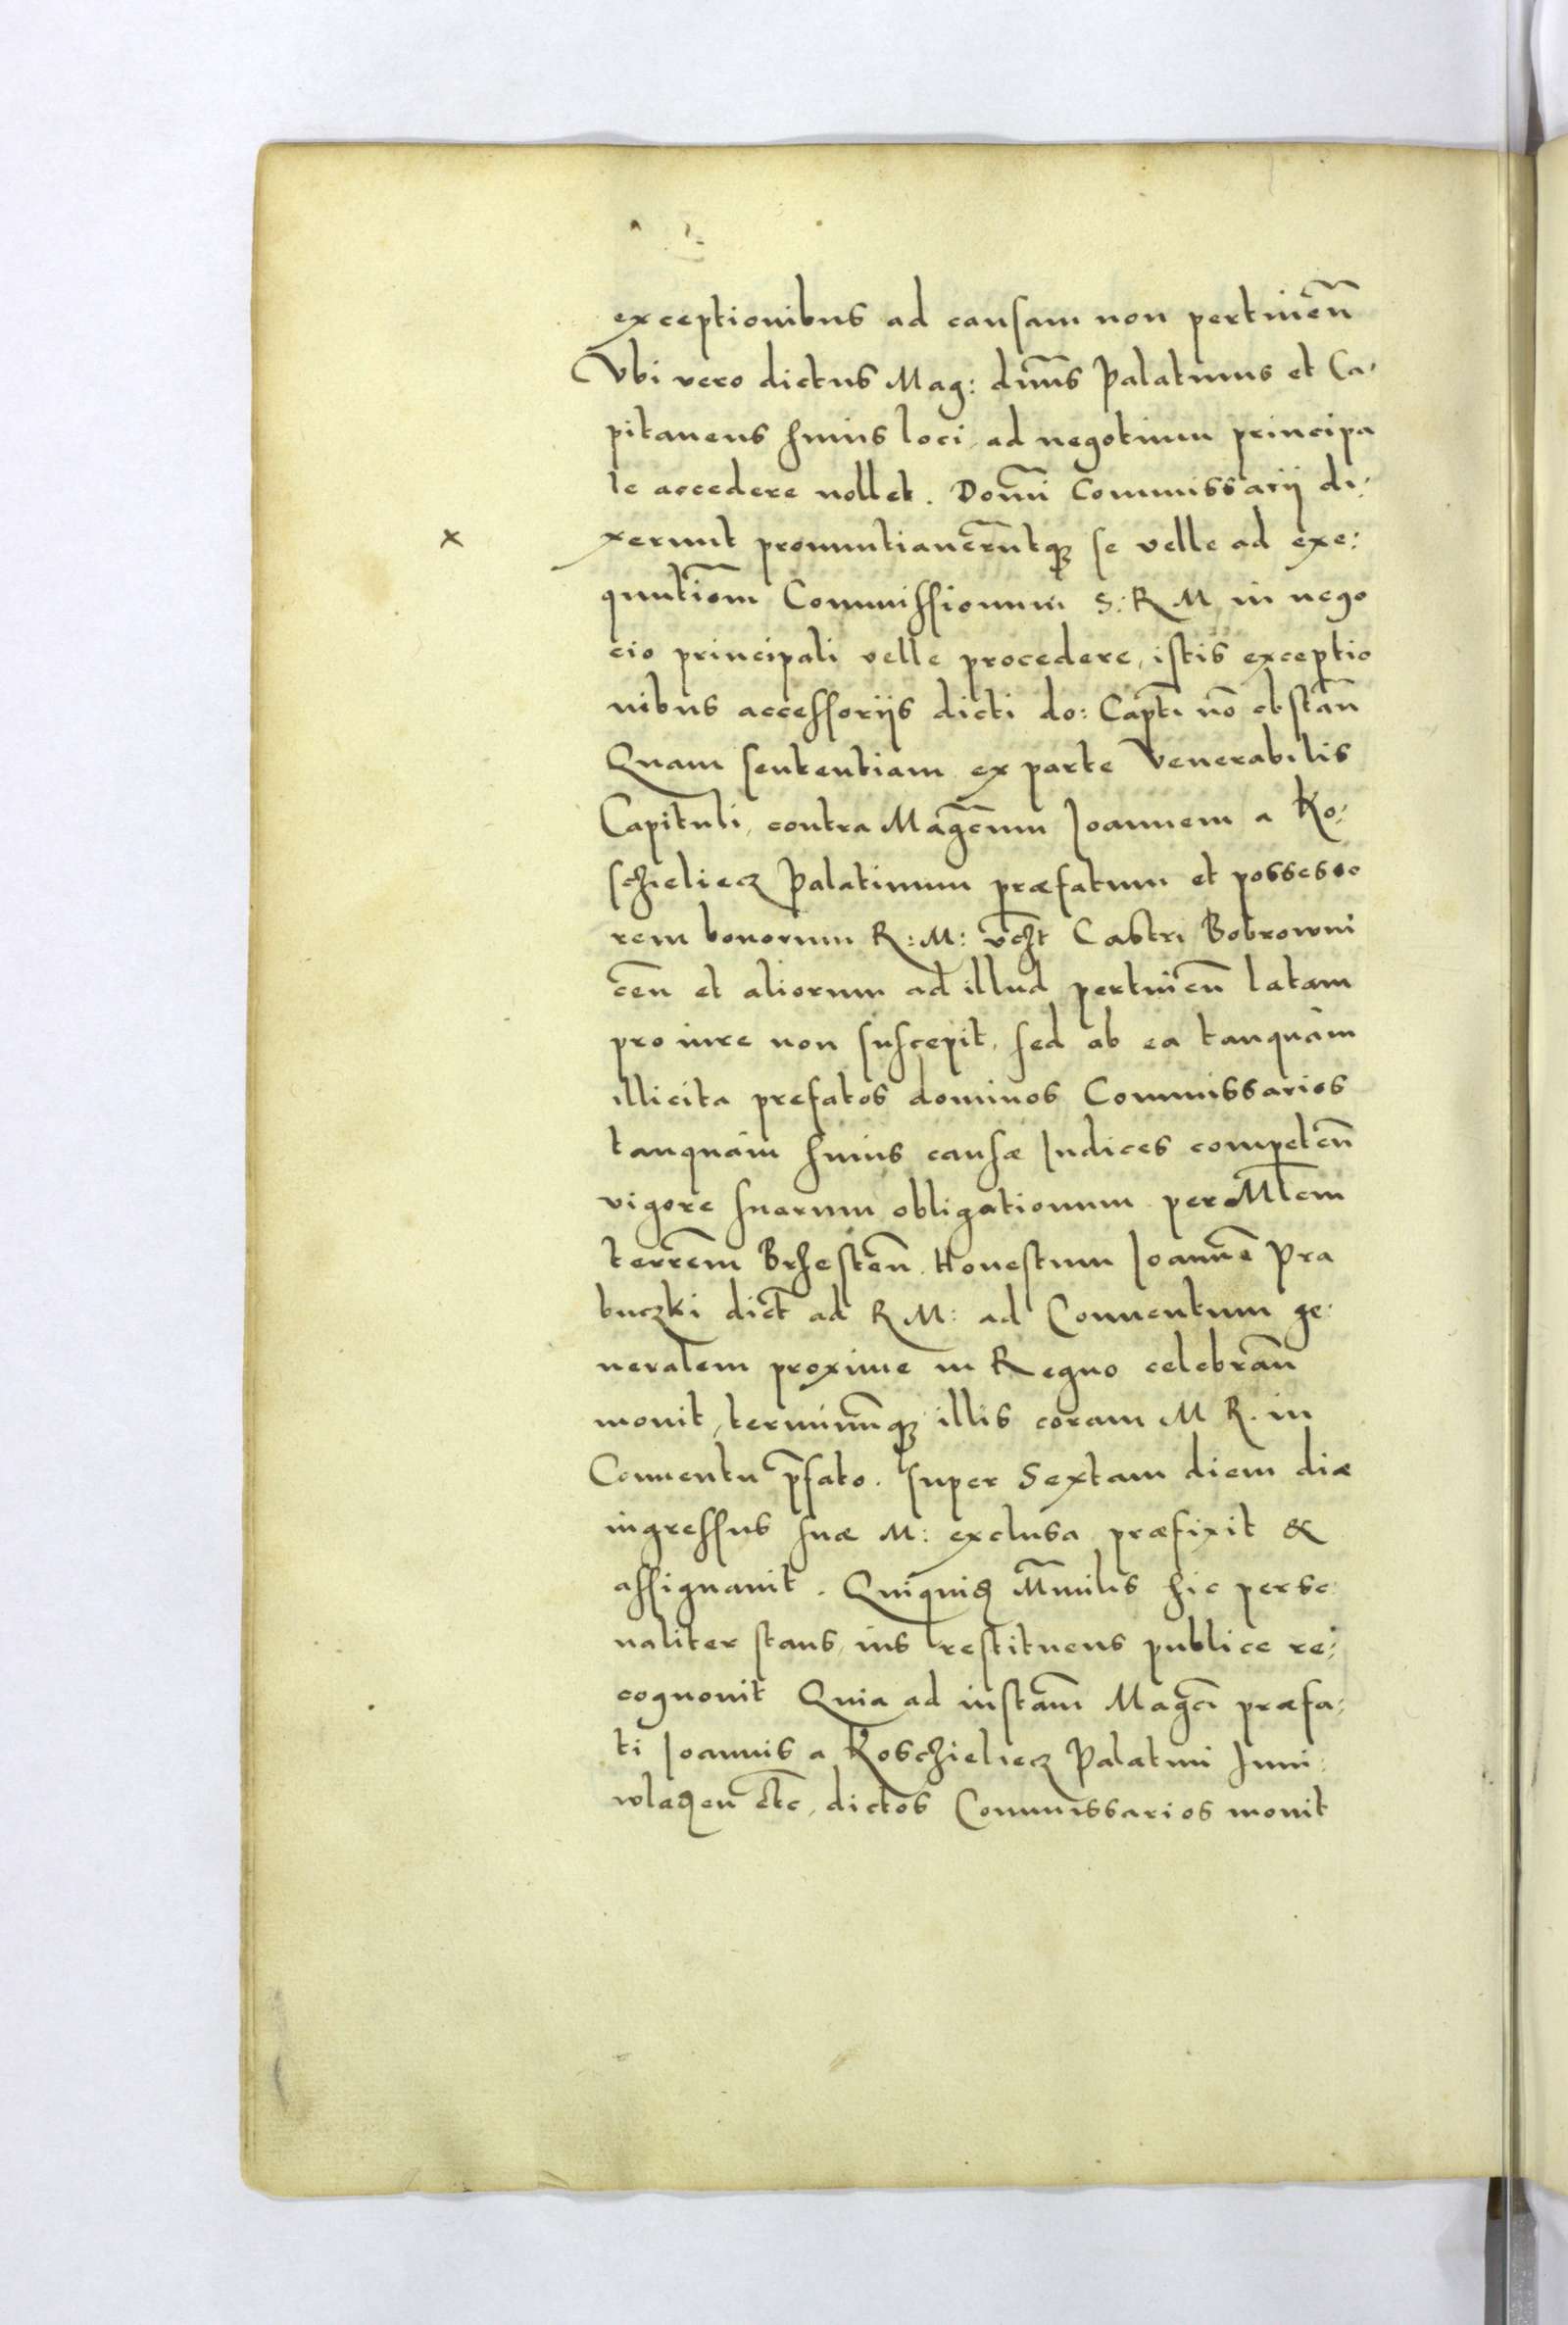 exceptionibus ad causam non pertineñ
Vbi vero dictus Mag: dnns̃ Palatinus et Ca,
pitaneus huius loci, ad negotium principa
le accedere nollet. Domĩ Commissarij di:
x xerunt pronuntiauerũtqȝ se velle ad exe:
quutiõm Commissionum S: R M, in nego
cio principali velle procedere, istis exceptio
nibus accessorijs dicti do: Capti nõ obstañ
Quam sententiam ex parte Venerabilis
Capituli, contra Magcum Joannem a Ko:
schielecz Palatinum præfatum et possesso
rem bonorum R: M: vcȝt Castri Bobrowni
ceñ et aliorum ad illud pertineñ latam
pro iure non suscepit, sed ab ea tanquam
illicita prefatos dominos Commissarios
tanquam huius causæ Judices competeñ
vigore suarum obligationum per Mlem
terrem̃ Brhesteñ. Honestum Joannẽ Pra
buczki dict̃ ad R M: ad Conuentum ge:
neralem proxime in Regno celebrañ
monit, terminũqȝ illis coram M R. in
Conuentu p̃fato. super Sextam diem diæ
ingressus suæ M: exclusa præfixit &
assignauit. Quiquidȝ Mniliis hic perso
naliter stans, ius restituens publice re:
cognouit Quia ad instañ Magci præfa,
ti Joannis a Koschielecz Palatini Juni:
wladȝeñ etc, dictos Commissarios monit